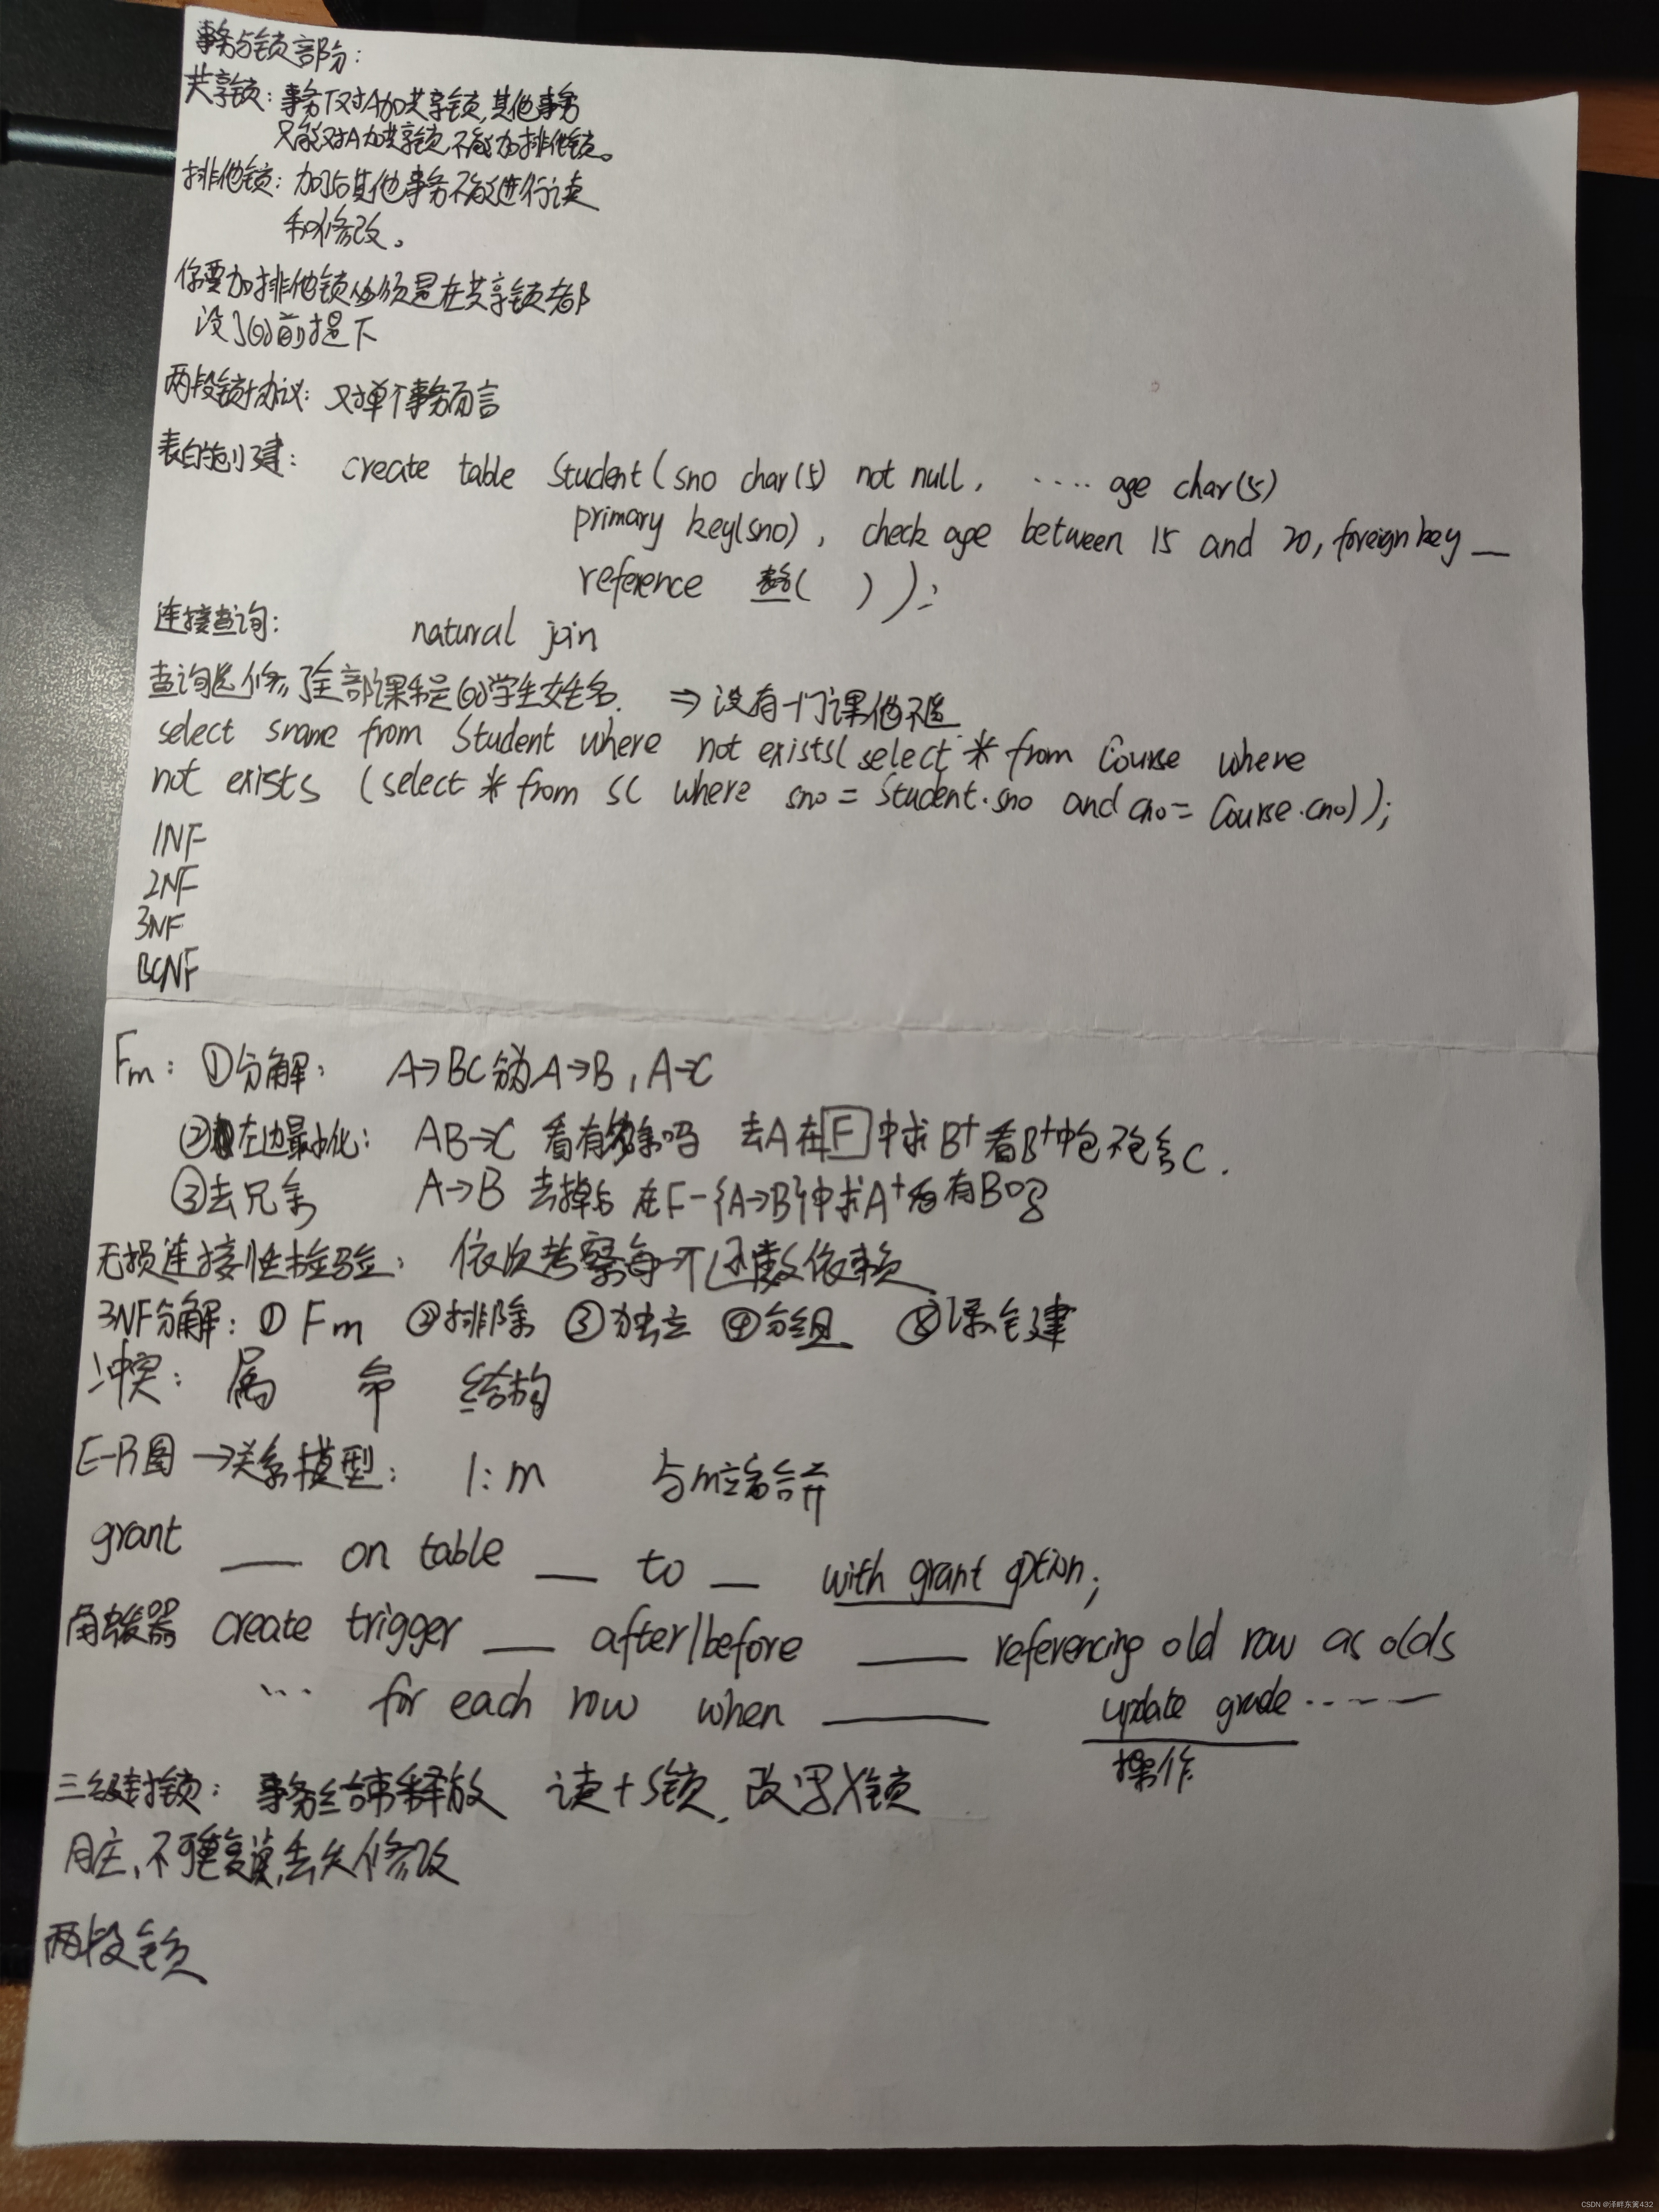 事务与锁部分:
共享锁: 事务T对A加共享锁,其他事务
只能对A加共享锁,不能加排他锁。
排他锁: 加后其他事务不能进行读
和修改。
你要加排他锁必须是在共享锁都
没了的前提下
两段锁协议: 对单个事务而言
表的创建: create table Student(sno char(5) not null, .... age char(5)
primary key(sno), check age between 15 and 20, foreign key __
reference ( ) );
连接查询: natural join
查询选修了全部课程的学生姓名. ⇒ 没有一门课他不选
select sname from Student where not exists( select * from Course where
not exists (select * from SC where sno = Student.sno and cno = Course.cno));
1NF
2NF
3NF
BCNF
Fm: ①分解: A→BC 分为A→B, A→C
②左边最小化: AB→C 看有多余吗 去A在F中求B+看B+中包不包含C.
③去冗余 A→B 去掉后 在F-{A→B}中求A+看有B吗
无损连接性检验: 依次考察每一个函数依赖
3NF分解: ①Fm ②排除 ③独立 ④分组 ⑤添关键
冲突: 属 命 结构
E-R图→关系模型: 1:m 与m端合并
grant __ on table __ to __ with grant option;
触发器 create trigger __ after/before __ referencing old row as olds
... for each row when __ update grade ....
操作
三级封锁: 事务结束释放 读+S锁, 改写X锁
月庄、不可重复读,丢失修改
两段锁
CSDN @泽畔东篱432